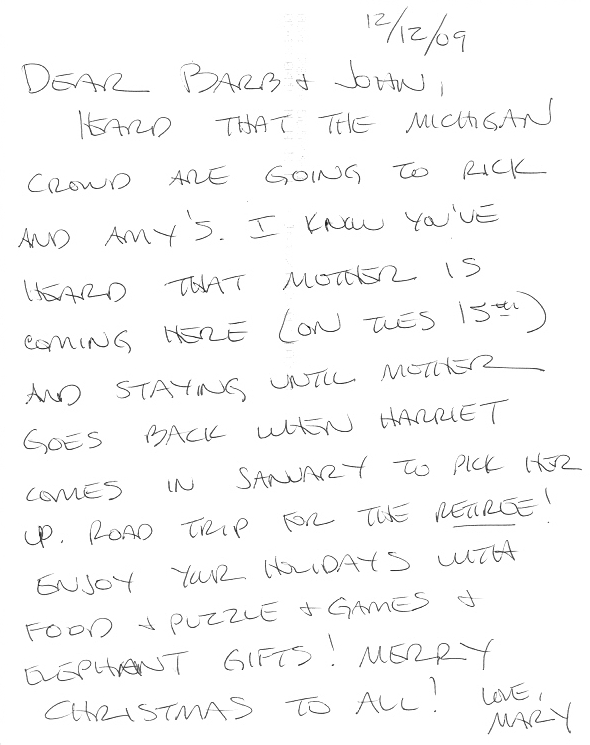 12/12/09
DEAR BARB & JOHN,
HEARD THAT THE MICHIGAN
CROWD ARE GOING TO RICK
AND AMY'S. I KNOW YOU'VE
HEARD THAT MOTHER IS
COMING HERE (ON TUES 15TH)
AND STAYING UNTIL MOTHER
GOES BACK WHEN HARRIET
COMES IN JANUARY TO PICK HER
UP. ROAD TRIP FOR THE RETIREE!
ENJOY YOUR HOLIDAYS WITH
FOOD & PUZZLE & GAMES &
ELEPHANT GIFTS! MERRY
CHRISTMAS TO ALL!
LOVE,
MARY